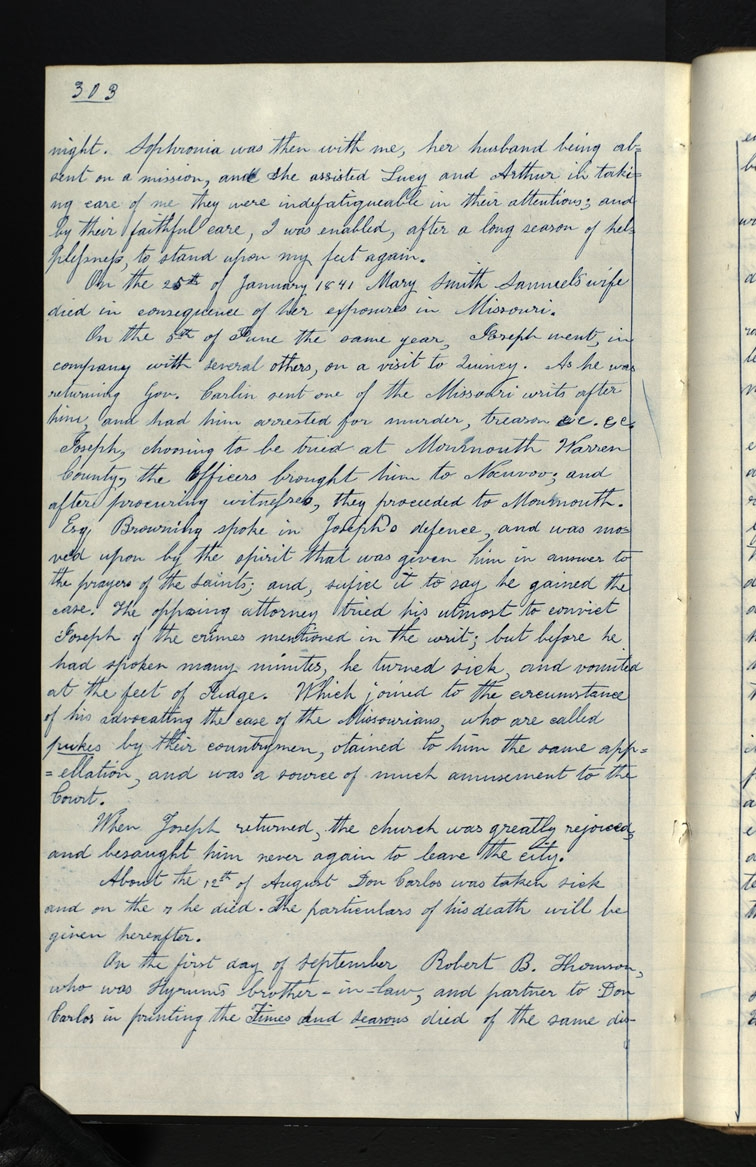 303
night. Sophronia was then with me, her husband being ab=
sent on a mission, and she assisted Lucy and Arthur in taki=
ng care of me they were indefatigueable in their attentions; and
by their faithful care, I was enabled, after a long season of hel=
plessness, to stand upon my feet again.
On the 25th of January 1841 Mary Smith Samuel's wife
died in consequence of her exposures in Missouri.
On the 5th of June the same year, Joseph went, in
company with several others, on a visit to Quincy. As he was
returning Gov. Carlin sent one of the Missouri writs after
him, and had him arrested for murder, treason &c. &c.
Joseph, choosing to be tried at Monmouth Warren
County; the Officers brought him to Nauvoo; and
after procuring witnesses, they proceeded to Monmouth.
Esq Browning spoke in Joseph's defence, and was mo=
ved upon by the spirit that was given him in answer to
the prayers of the saints; and, sufice it to say he gained the
case. The opposing attorney tried his utmost to convict
Joseph of the crimes mentioned in the writ; but before he
had spoken many minutes, he turned sick, and vomited
at the feet of Judge. Which joined to the circumstance
of his advocatting the case of the Missourians, who are called
pukes by their countrymen, otained to him the same app=
=ellation, and was a source of much amusement to the
Court.
When Joseph returned, the church was greatly rejoiced,
and besaught him never again to leave the city.
About the 12th of August Don Carlos was taken sick
and on the 7 he died. The particulars of his death will be
given hereafter.
On the first day of september Robert B. Thomson,
who was Hyrum's brother-in-law, and partner to Don
Carlos in printing the Times and seasons died of the same dis-